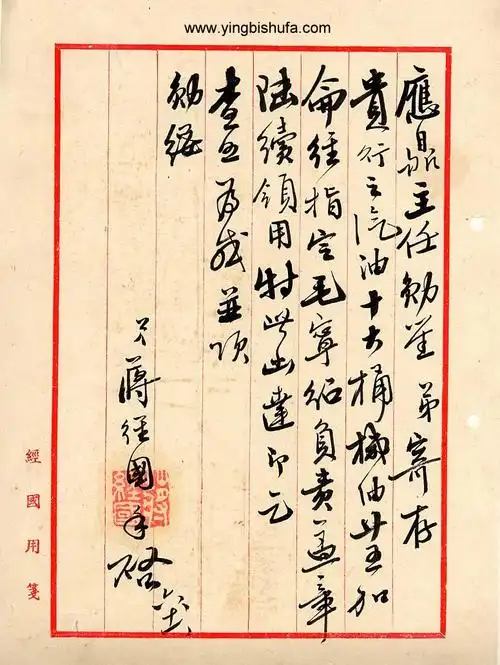 www.yingbishufa.com
應鼎主任勛鑒 弟寄存
貴行之汽油十大桶機油廿五加
侖經指定毛寧紹負責蓋章
陸續領用特此函達即乞
查照為感並頌
勛綏
弟蔣經國手啟
經國用箋